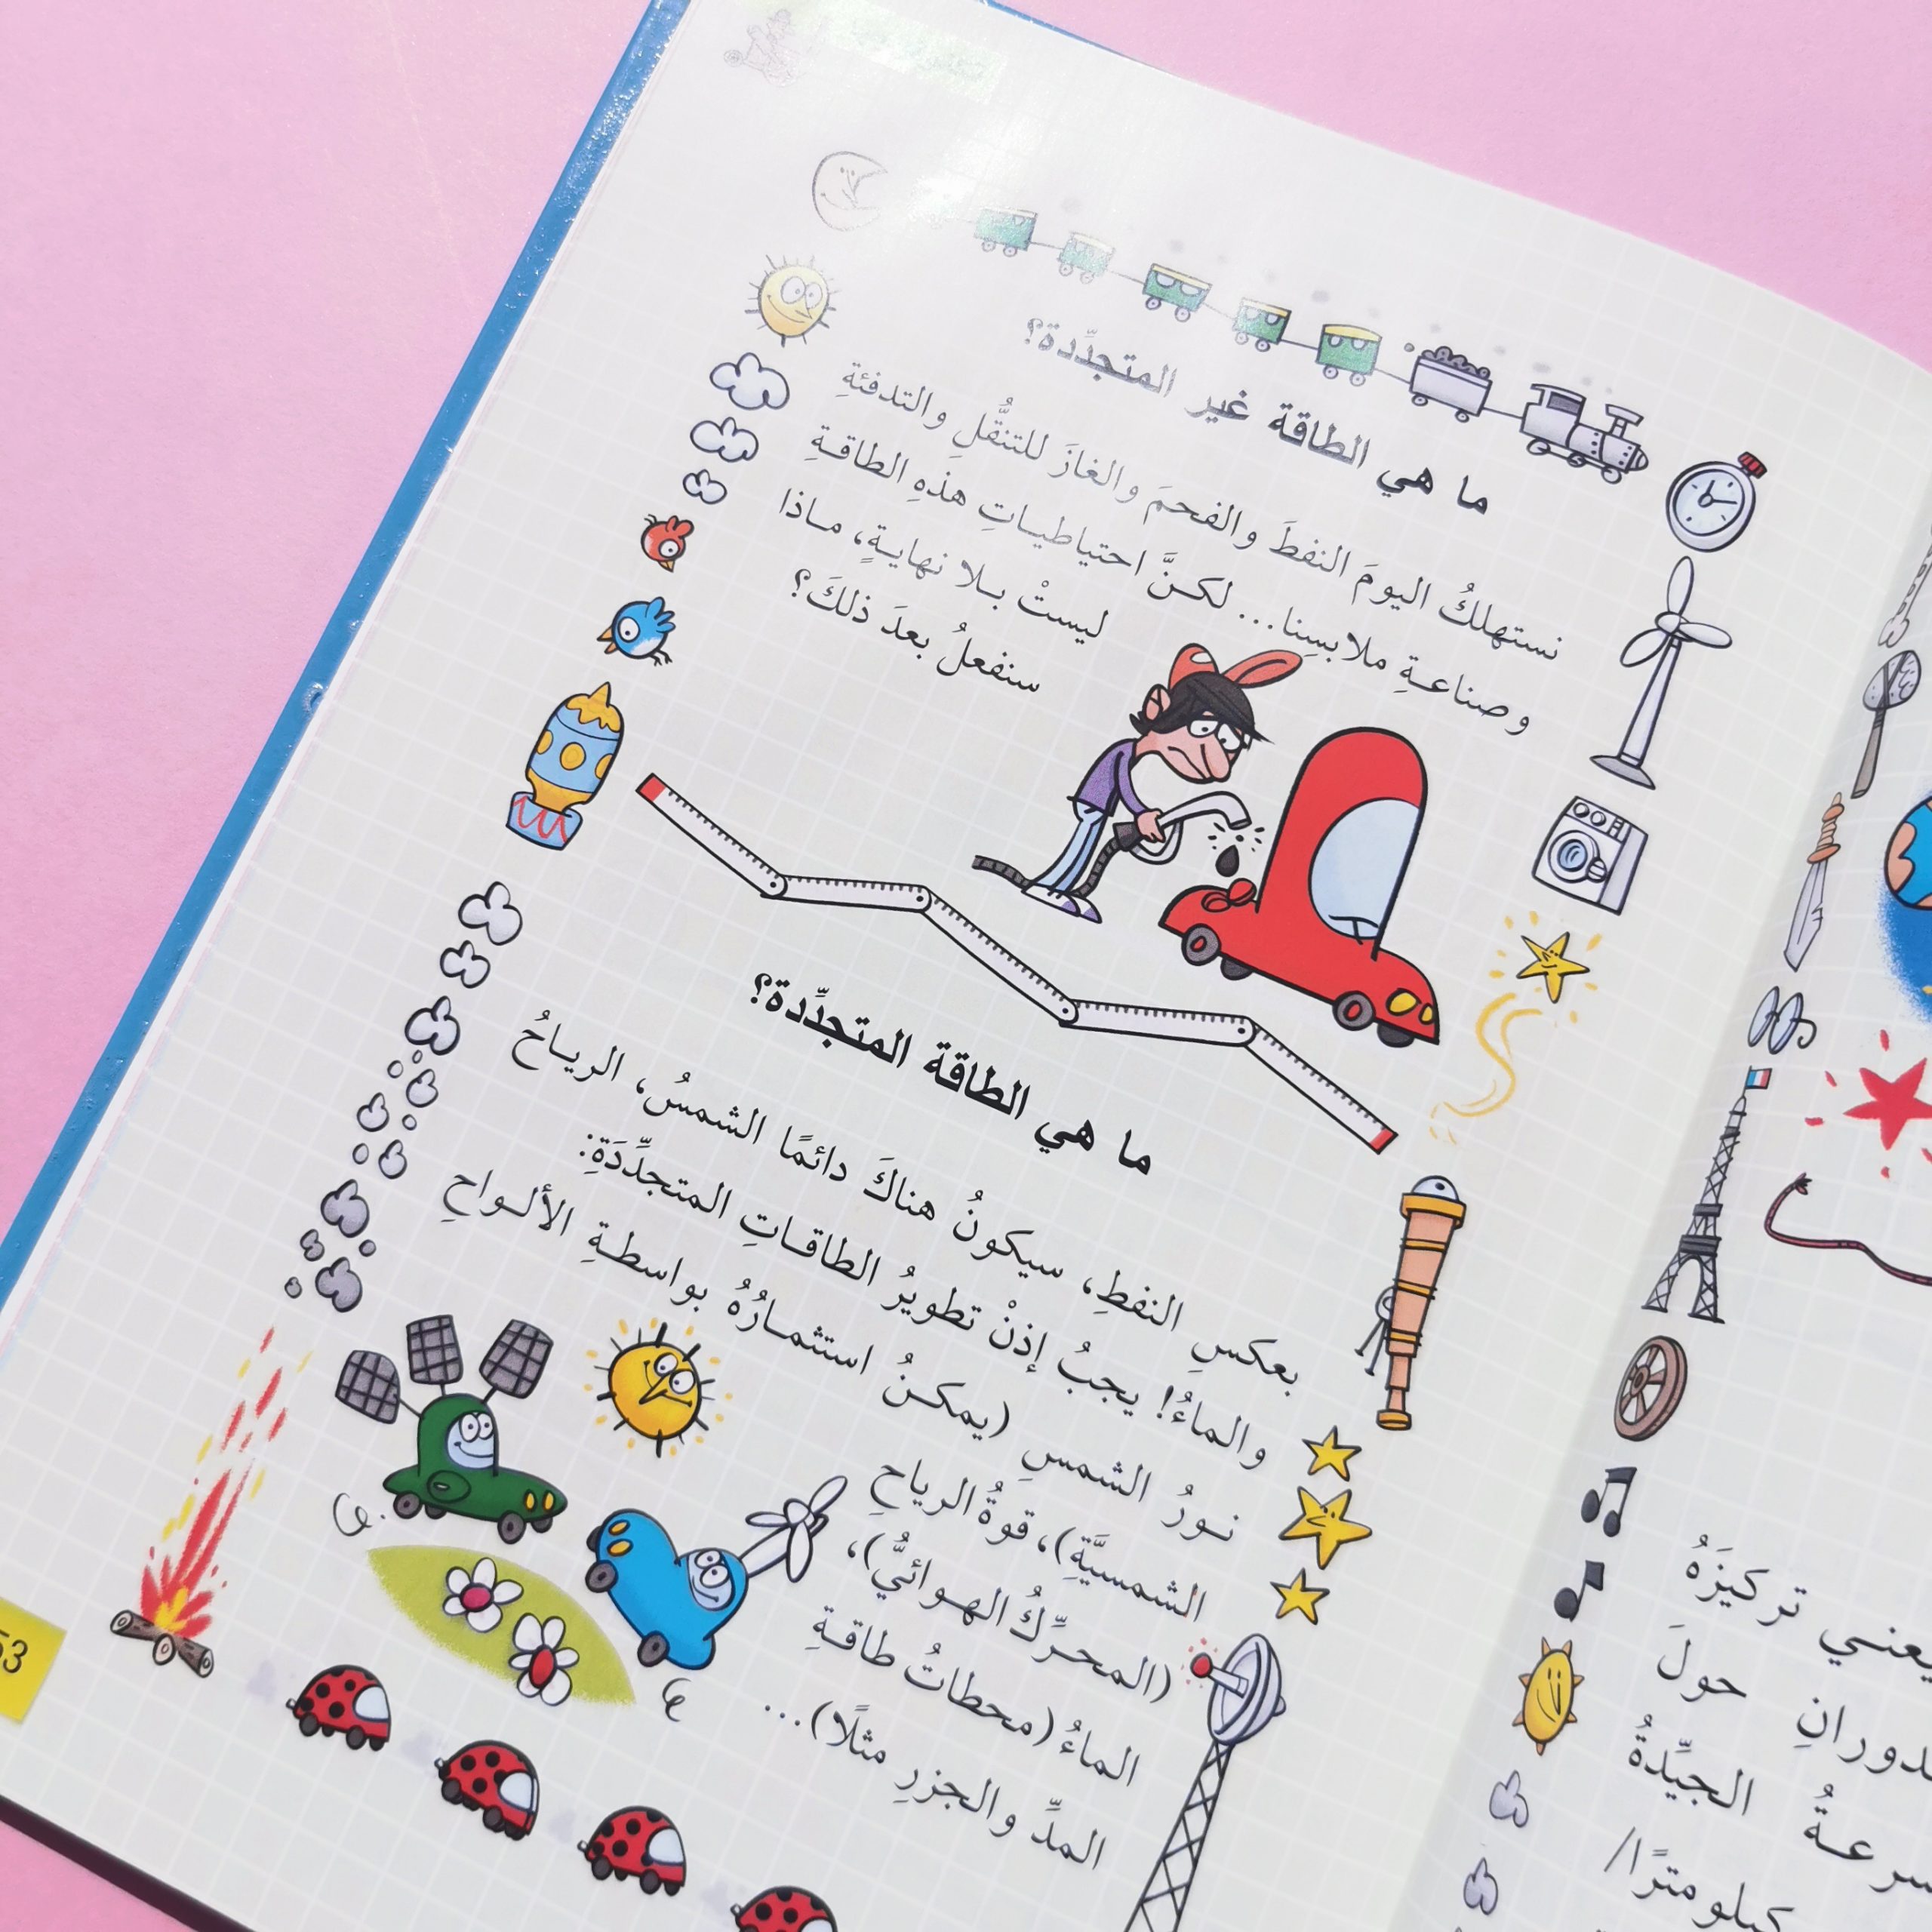 ما هي الطاقة غير المتجدِّدة؟
نستهلكُ اليومَ النفطَ والفحمَ والغازَ للتنقُّلِ والتدفئةِ
وصناعةِ ملابسِنا... لكنَّ احتياطياتِ هذهِ الطاقةِ
ليستْ بلا نهايةٍ، ماذا
سنفعلُ بعدَ ذلكَ؟
ما هي الطاقة المتجدِّدة؟
بعكسِ النفطِ، سيكونُ هناكَ دائمًا الشمسُ، الرياحُ
والماءُ! يجبُ إذنْ تطويرُ الطاقاتِ المتجدِّدَةِ:
نورُ الشمسِ (يمكنُ استثمارُهُ بواسطةِ الألواحِ
الشمسيَّةِ)، قوةُ الرياحِ
(المحرِّكُ الهوائيُّ)،
الماءُ (محطاتُ طاقةِ
المدِّ والجزرِ مثلًا)...
53
يعني تركيزَهُ
حولَ
الجيِّدةُ
كيلومترًا/